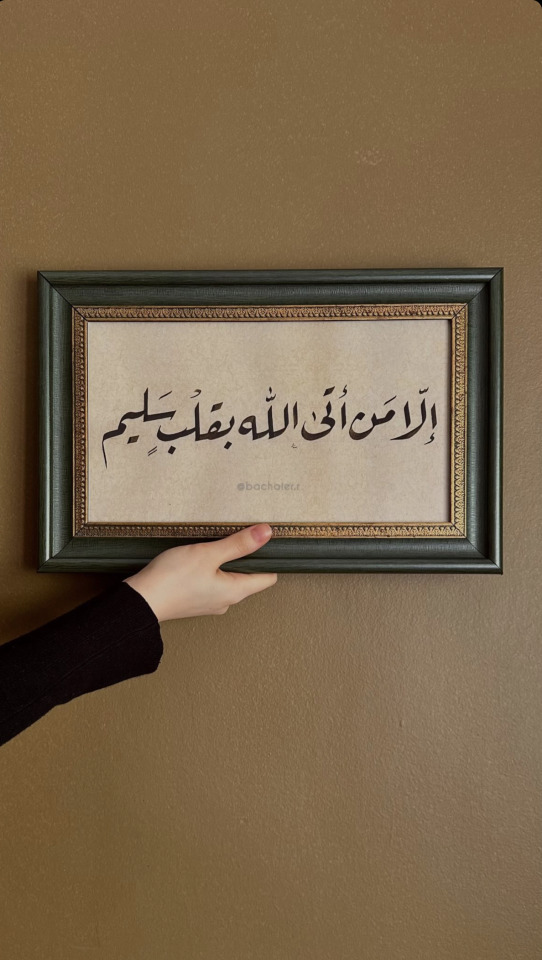 إلّا مَن أتَى اللّه بقلْب سَليمٍ
@bachaier.r